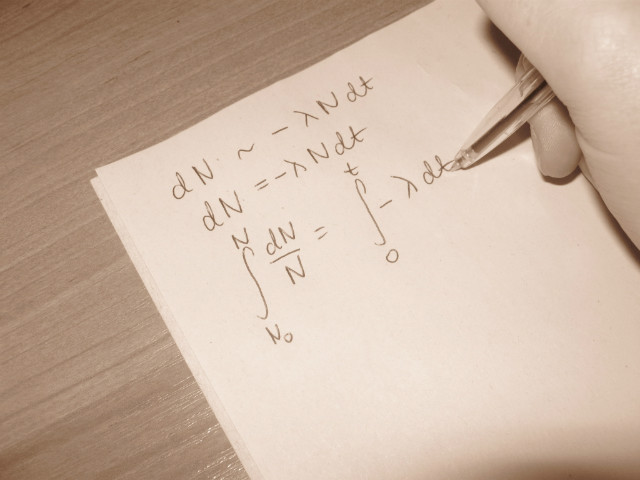 dN ~ - λ N dt
dN = - λ N dt
∫_{N₀}^{N} dN/N = ∫_{0}^{t} - λ dt